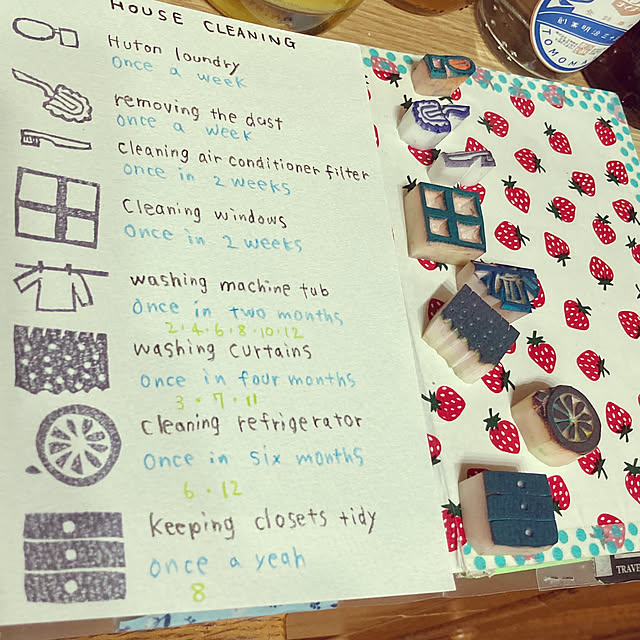 HOUSE CLEANING
Huton loundry
once a week
removing the dust
once a week
cleaning air conditioner filter
once in 2 weeks
cleaning windows
once in 2 weeks
washing machine tub
once in two months
2・4・6・8・10・12
washing curtains
once in four months
3・7・11
cleaning refrigerator
once in six months
6・12
keeping closets tidy
once a yeah
8
TOMO
TRAVE